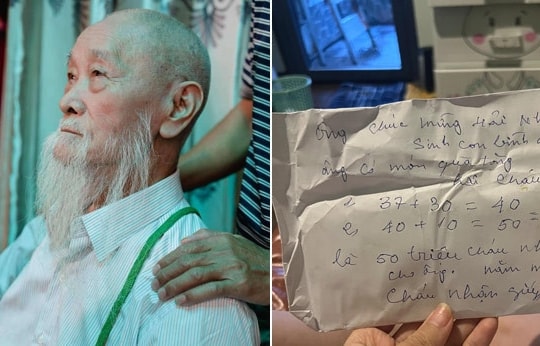 Ông chúc mừng Hải Nh
Sinh con bình
ông có món quà tặng
hai cháu
1, 37 + 30 = 40
2, 40 + 10 = 50 =
là 50 triệu cháu nh
cho ông.
Cháu nhận giúp